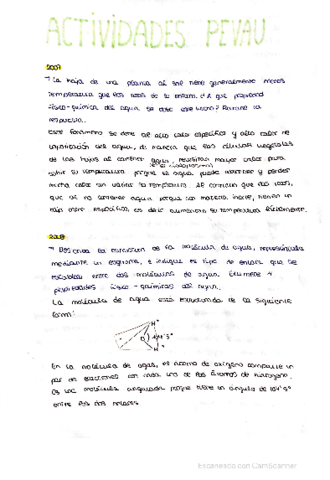 ACTIVIDADES PEVAU
2007
- La hoja de una planta al sol tiene generalmente menos
temperatura que las rocas de su entorno. ¿A qué propiedad
físico-química del agua se debe este hecho? Razone la
respuesta.
Este fenómeno se debe al alto calor específico y alto calor de
vaporización del agua, de manera que las células vegetales
de las hojas al contener agua, necesitan mayor calor para
subir su temperatura porque el agua puede absorber y perder
mucho calor sin variar su temperatura. Al contrario que las rocas,
que al no contener agua porque son materia inerte, tienen un
calor específico es decir aumentan su temperatura fácilmente.
2008
- Describa la estructura de la molécula de agua, represéntela
mediante un esquema, e indique el tipo de enlace que se
establece entre dos moléculas de agua. Enumere 4
propiedades físico-químicas del agua.
La molécula de agua está estructurada de la siguiente
forma:
H
O
H
En la molécula de agua, el átomo de oxígeno comparte un
par de electrones con cada uno de los átomos de hidrógeno.
Es una molécula angular porque tiene un ángulo de
entre los dos enlaces
Escaneado con CamScanner